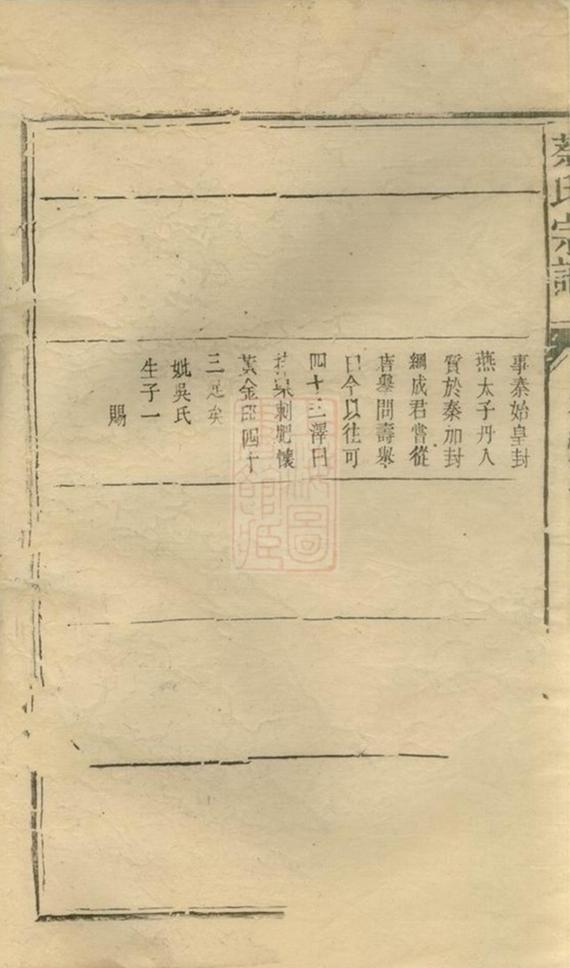 蔡氏宗譜
事秦始皇封
燕太子丹入
質於秦加封
綱成君嘗從
唐舉問壽舉
曰今以往可
四十三澤曰
粱刺肥懷
黃金印四十
三足矣
妣吳氏
生子一
賜